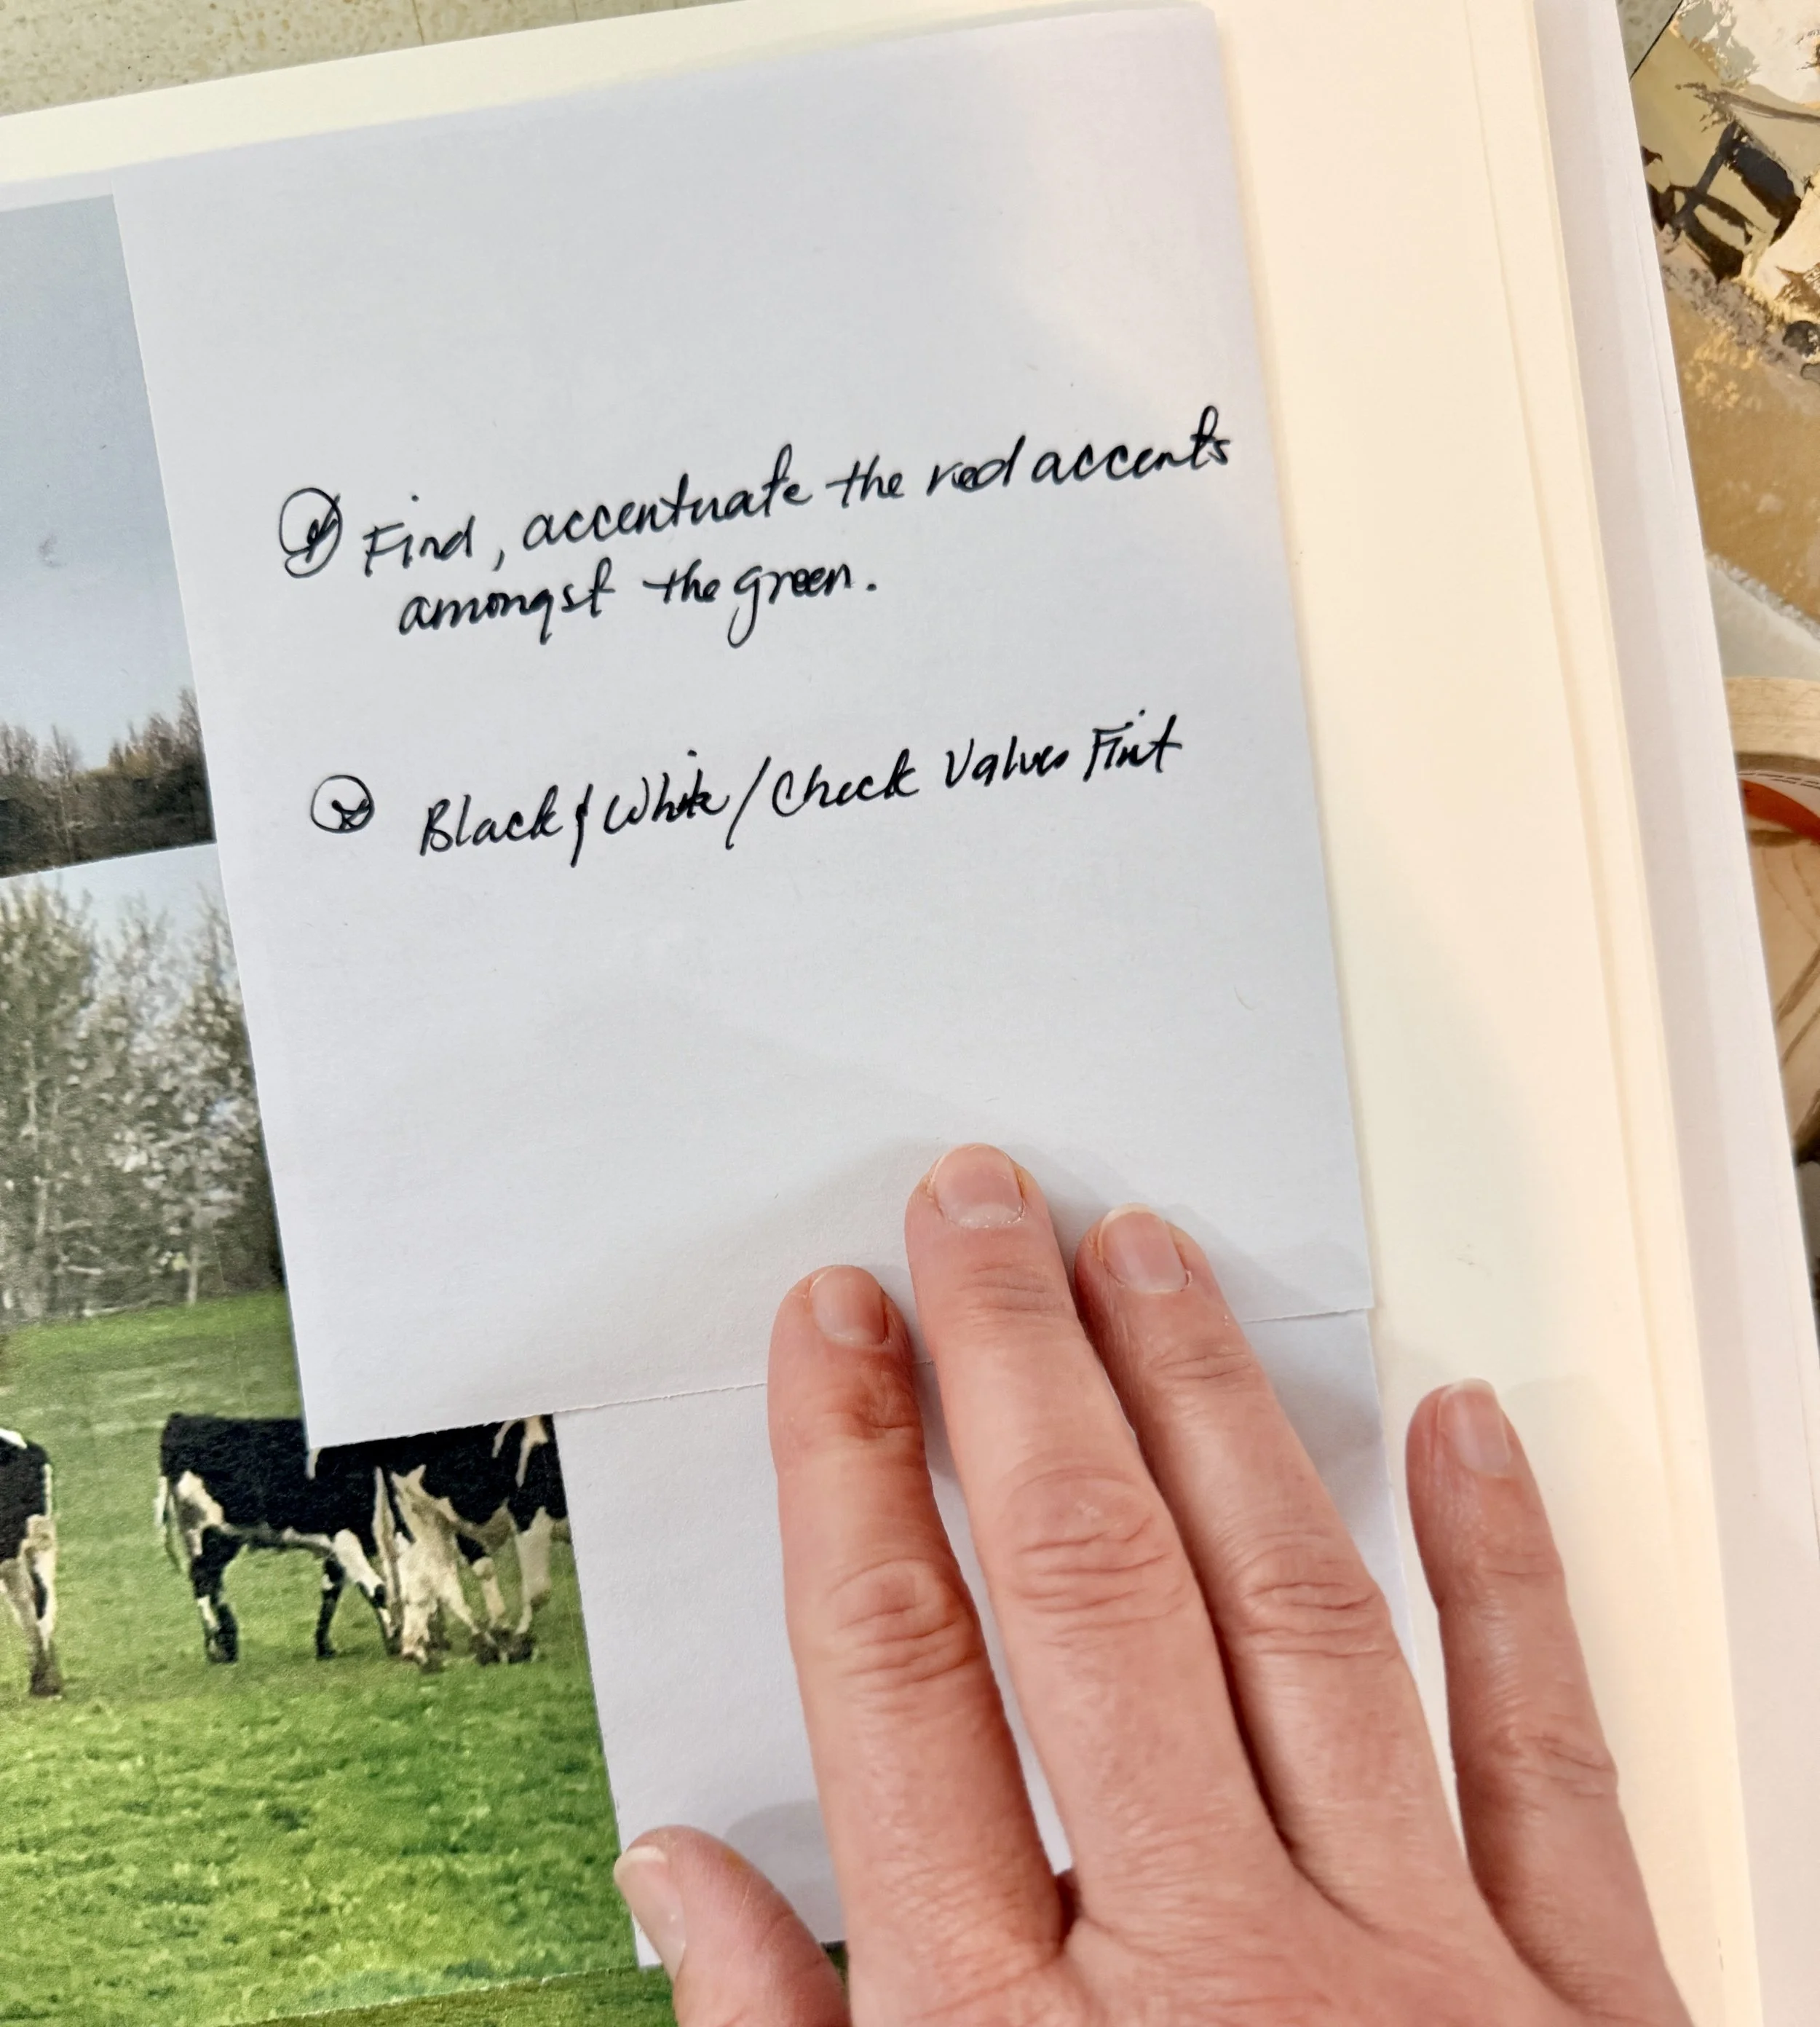 Find, accentuate the red accents
amongst the green.
Black & White / Check Values First